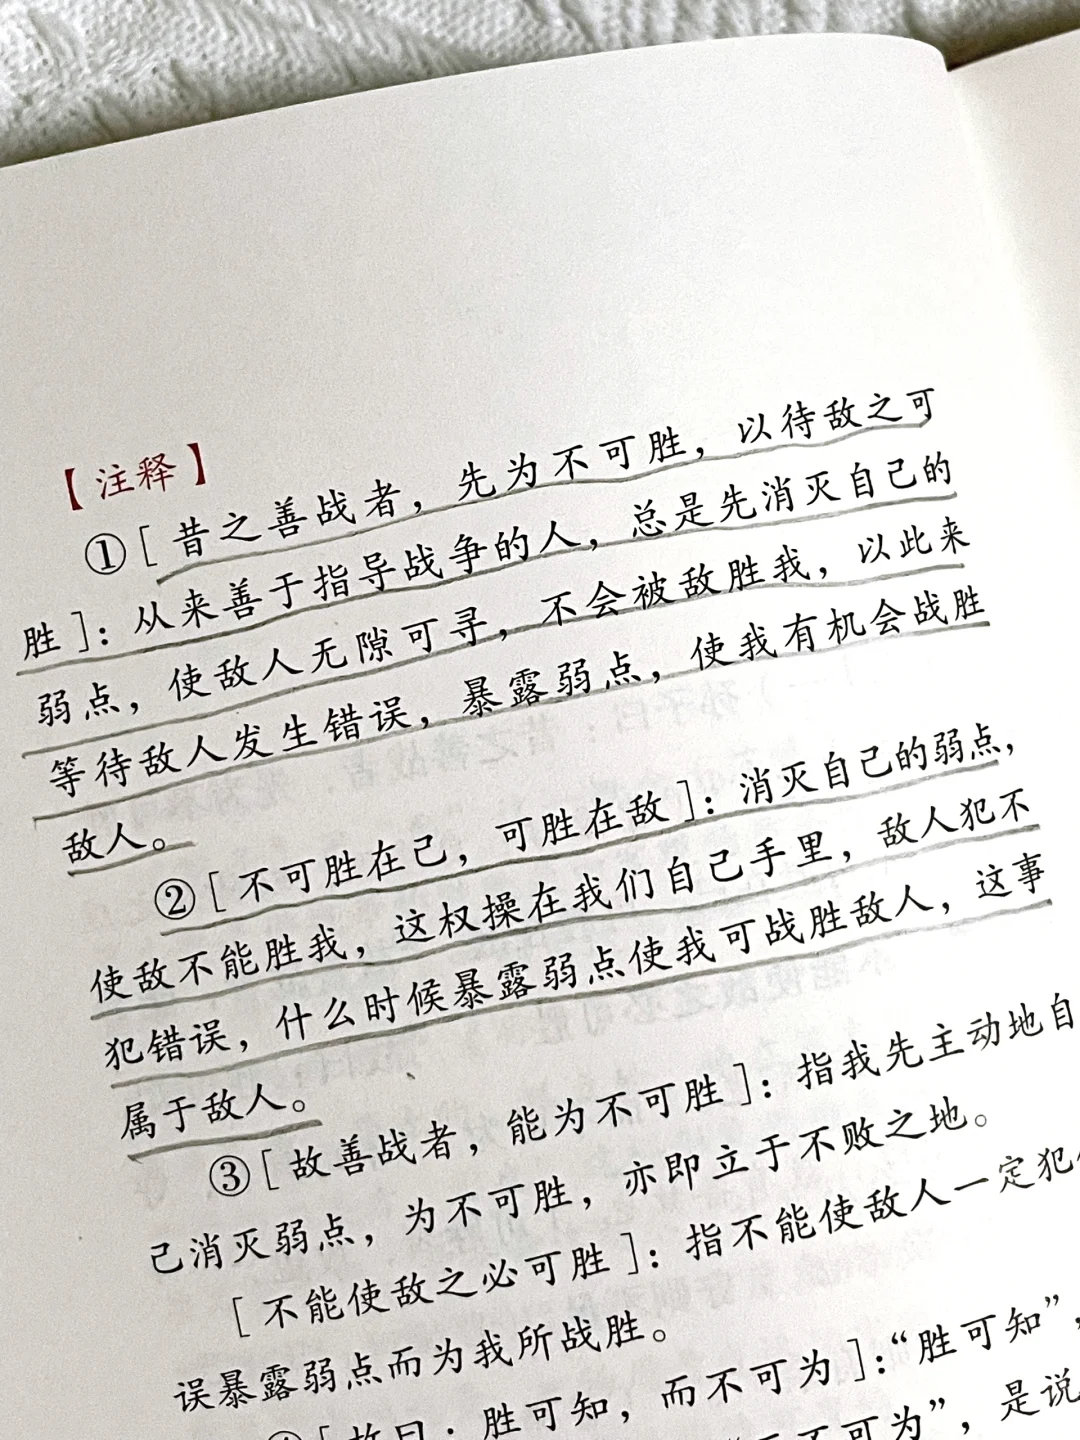 【注释】
①[昔之善战者，先为不可胜，以待敌之可
胜]：从来善于指导战争的人，总是先消灭自己的
弱点，使敌人无隙可寻，不会被敌胜我，以此来
等待敌人发生错误，暴露弱点，使我有机会战胜
敌人。
②[不可胜在己，可胜在敌]：消灭自己的弱点，
使敌不能胜我，这权操在我们自己手里，敌人犯不
犯错误，什么时候暴露弱点使我可战胜敌人，这事
属于敌人。
③[故善战者，能为不可胜]：指我先主动地自
己消灭弱点，为不可胜，亦即立于不败之地。
[不能使敌之必可胜]：指不能使敌人一定犯
误暴露弱点而为我所战胜。
[故曰：胜可知，而不可为]：“胜可知”，
不可为”，是说